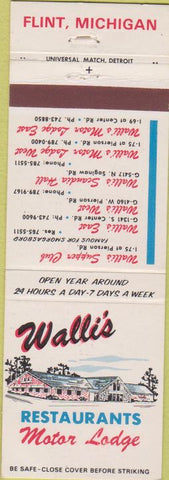 FLINT, MICHIGAN
UNIVERSAL MATCH, DETROIT
+
Walli's Supper Club
FAMOUS FOR SMORGASBORD
I-75 at Pierson Rd.
Res: 765-5511
Walli's East
G-1341 S. Center Rd. • Ph: 743-9600
Walli's West
G-3160 W. Pierson Rd. • Phone: 789-9167
Walli's Scandia Hall
G-5417 N. Saginaw Rd. • Phone: 785-5511
Walli's Motor Lodge West
I-75 at Pierson Rd. • Ph. 789-0400
Walli's Motor Lodge East
I-69 at Center Rd. • Ph. 743-8850
OPEN YEAR AROUND
24 HOURS A DAY-7 DAYS A WEEK
Walli's
RESTAURANTS
Motor Lodge
BE SAFE-CLOSE COVER BEFORE STRIKING